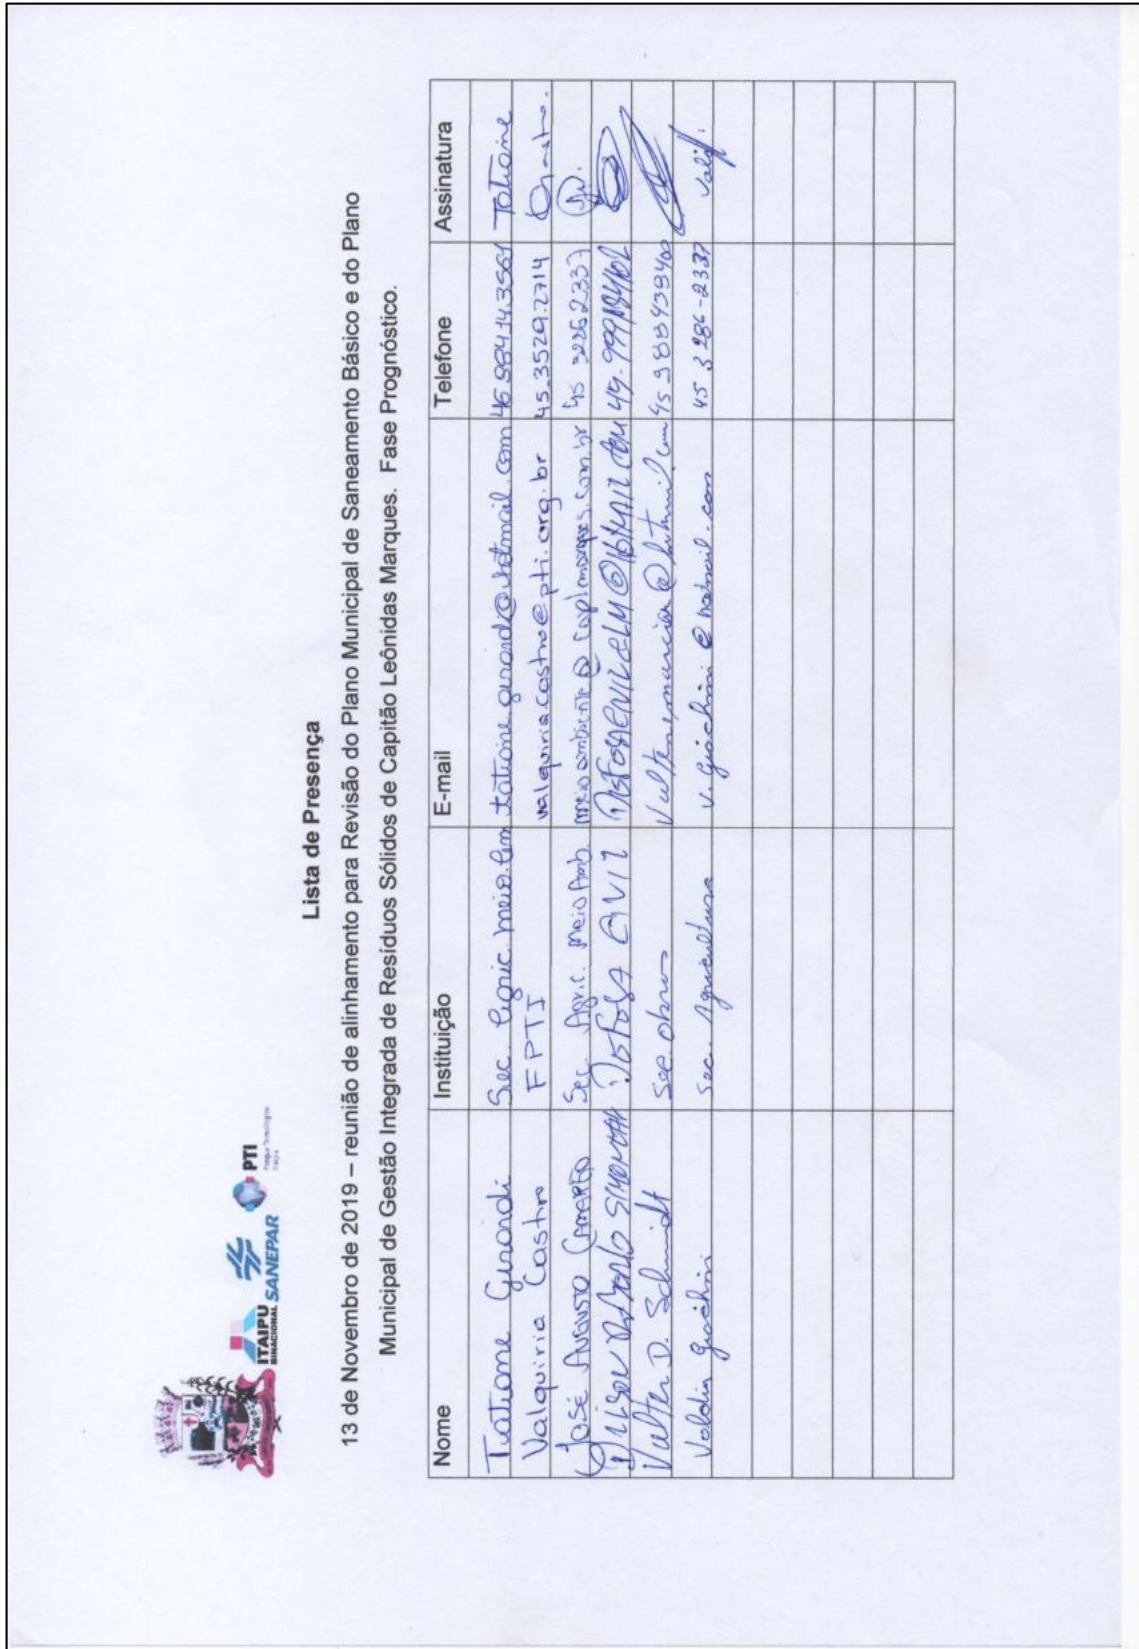 ITAIPU
BINACIONAL
SANEPAR
PTI
Parque Tecnológico
Itaipu
Lista de Presença
13 de Novembro de 2019 – reunião de alinhamento para Revisão do Plano Municipal de Saneamento Básico e do Plano
Municipal de Gestão Integrada de Resíduos Sólidos de Capitão Leônidas Marques. Fase Prognóstico.
Nome Instituição E-mail Telefone Assinatura
Tatiane Girardi Sec. Agric. meio. Am tatiane.girardi@hotmail.com 46 984143561 Tatiane
Valquiria Castro FPTI valquiria.castro@pti.org.br 45.3529.2714
José Augusto Camargo Sec. Agric. Meio Amb. meioambiente@ 45 3286 2337
Defesa Civil
Valter D. Schmidt Sec obras
Valdir Giachini Sec. Agricultura v.giachini@hotmail.com 45 3286-2337